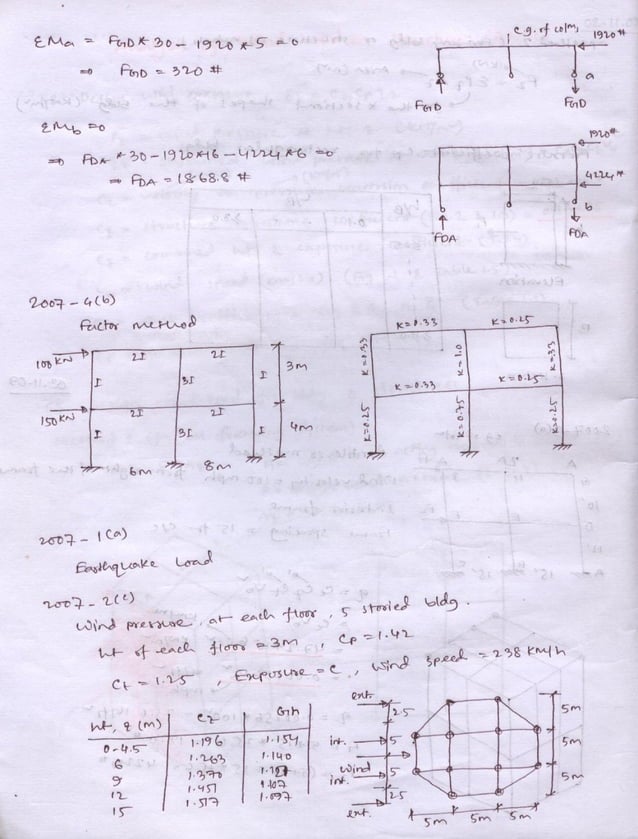 ΣMa = FGD * 30 - 1920 * 5 = 0
⇒ FGD = 320 #
ΣMb = 0
⇒ FDA * 30 - 1920*16 - 4224*6 = 0
⇒ FDA = 1868.8 #
c.g. of colm,
1920#
a
FGD
FGD
1920#
4224#
b
FDA
FDA
2007 - 4(b)
Factor method
100 KN
2I
2I
I
3I
I
3m
150 KN
2I
2I
I
3I
I
4m
6m
8m
K=0.33
K=0.25
K=0.33
K=1.0
K=.33
K=0.33
K=0.25
K=0.25
K=0.75
K=0.25
2007 - 1(a)
Earthquake Load
2007 - 2(c)
Wind pressure, at each floor, 5 storied bldg.
ht of each floor = 3m, Cp = 1.42
Ct = 1.25, Exposure = C, Wind speed = 238 km/h
ht, z (m) Cz Gh
0-4.5 1.196 1.154
6 1.263 1.140
9 1.370
12 1.451 1.107
15 1.517 1.097
ext.
2.5
int.
5
Wind
int.
5
2.5
ext.
5m
5m
5m
5m
5m
5m